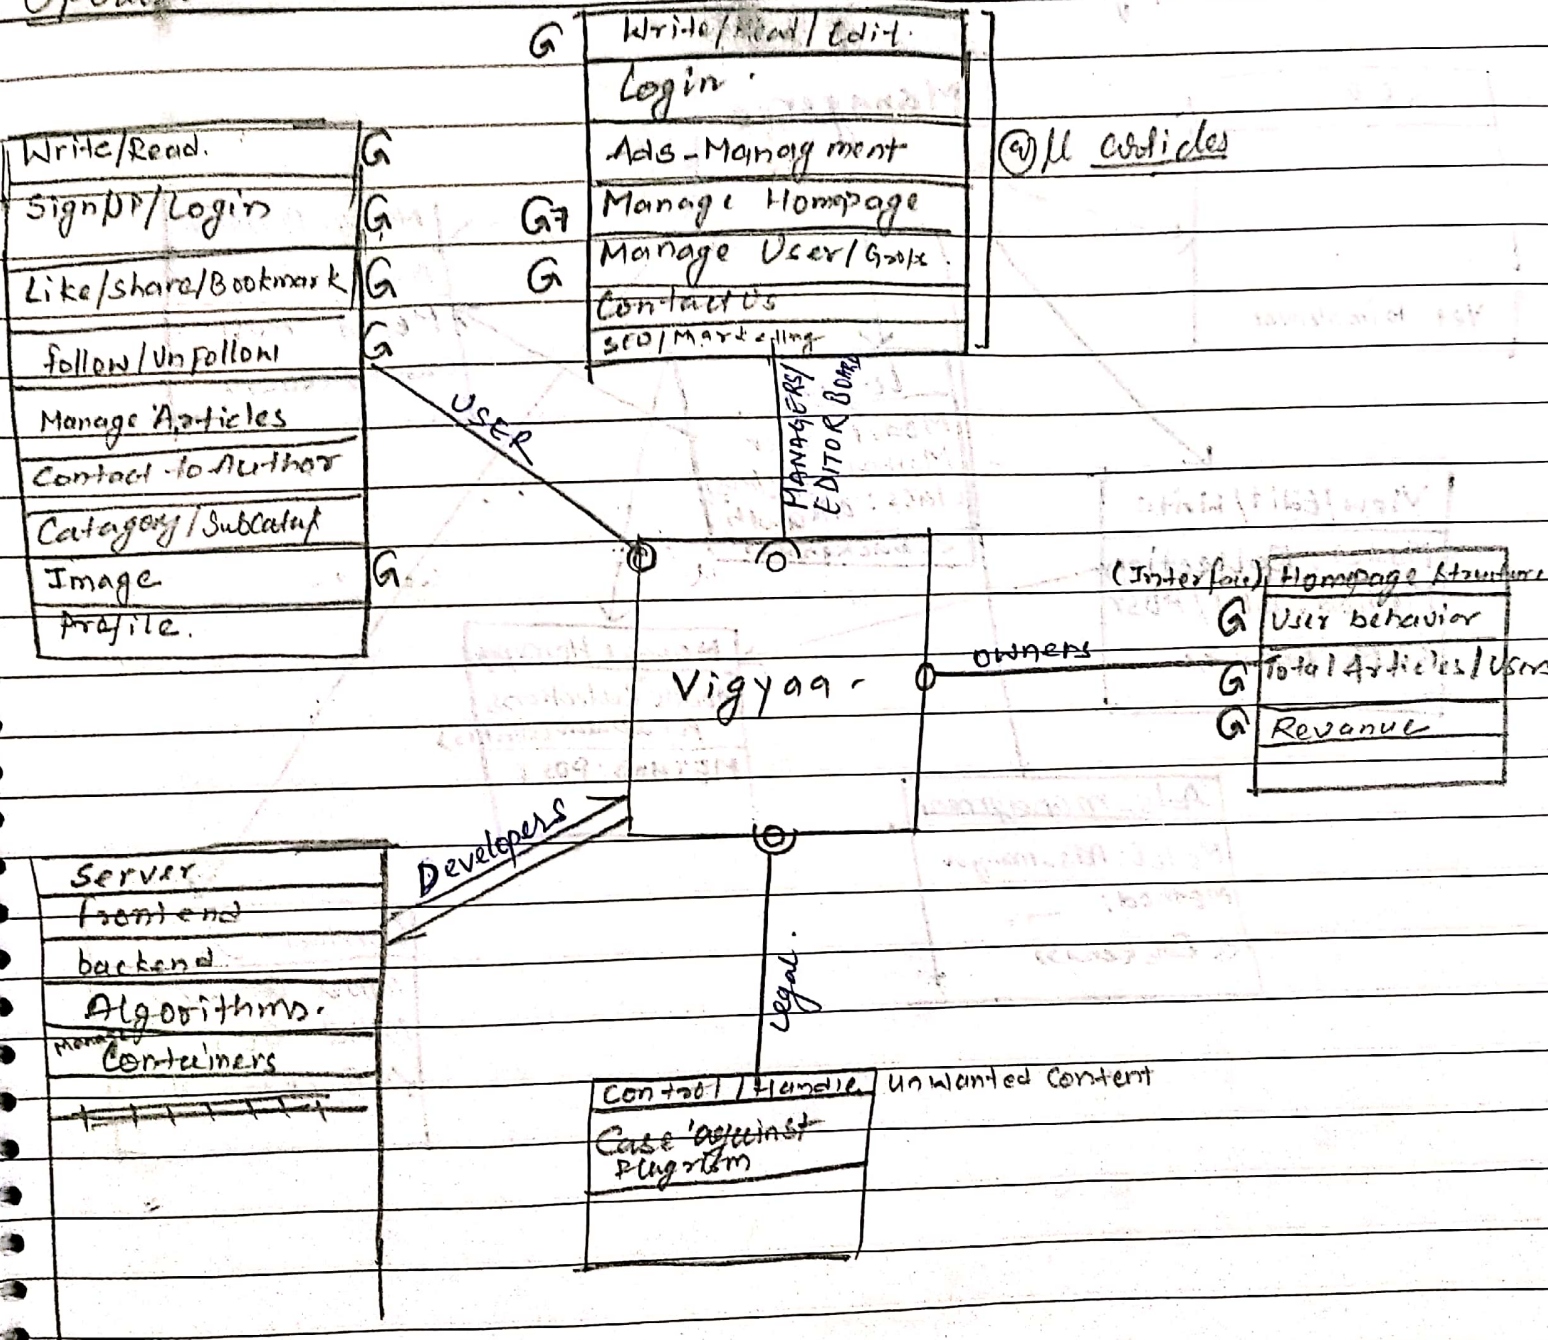 G
Write/Read/Edit.
Login.
Ads-Managment
@ll articles
G7
Manage Homepage
G
Manage User/
Contact Us
SEO/Marketing
Write/Read.
G
SignUP/Login
G
Like/share/Bookmark
G
follow/Unfollow
G
Manage Articles
Contact to Author
Catagory/SubCatag
Image
G
Profile.
USER
MANAGERS/
EDITOR BOARD
Vigyaa
owners
(Interface) Homepage Structure
G
User behavior
G
Total Articles/Users
G
Revanue
Developers
Server
frontend
backend
Algorithms.
Manage
Containers
Legal.
Control/Handle unwanted Content
Case against
Plagrism